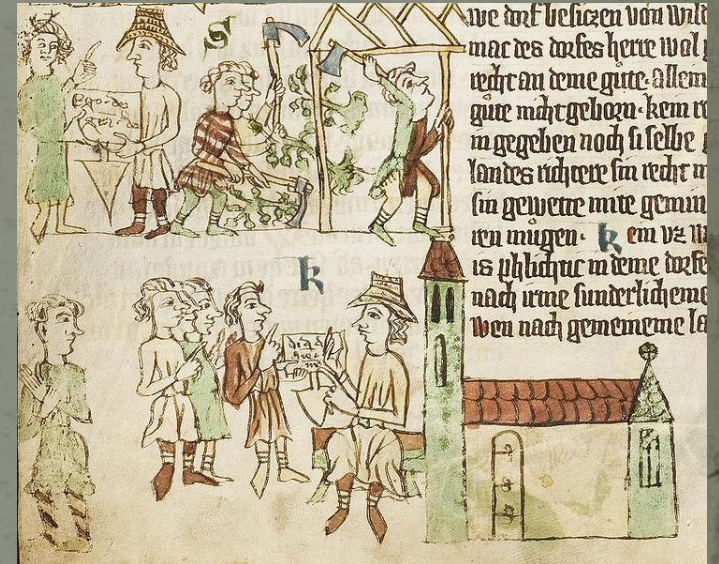 S
Ego dei
k
we dorf besiczen von wild
mac des dorfes herre wol
recht an deme gůte· allein
gůte nicht geborn· kein re
in gegeben noch si selbe
landes richtere sin recht
sin gewette mite
ren můgen· kein vz
is phlichtic in deme dorfe
nach irme sunderlicheme
wen nach gemeineme la